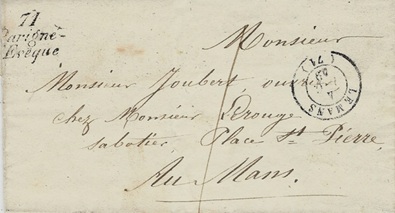 71
Parigné-
l'Evêque
Monsieur
Monsieur Joubert, ouvr
chez Monsieur Lerouge
sabotier, Place St Pierre,
Au Mans.
LE MANS
(71)